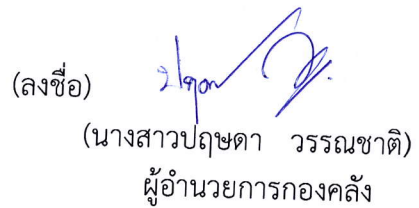 (ลงชื่อ)
(นางสาวปฤษดา วรรณชาติ)
ผู้อำนวยการกองคลัง